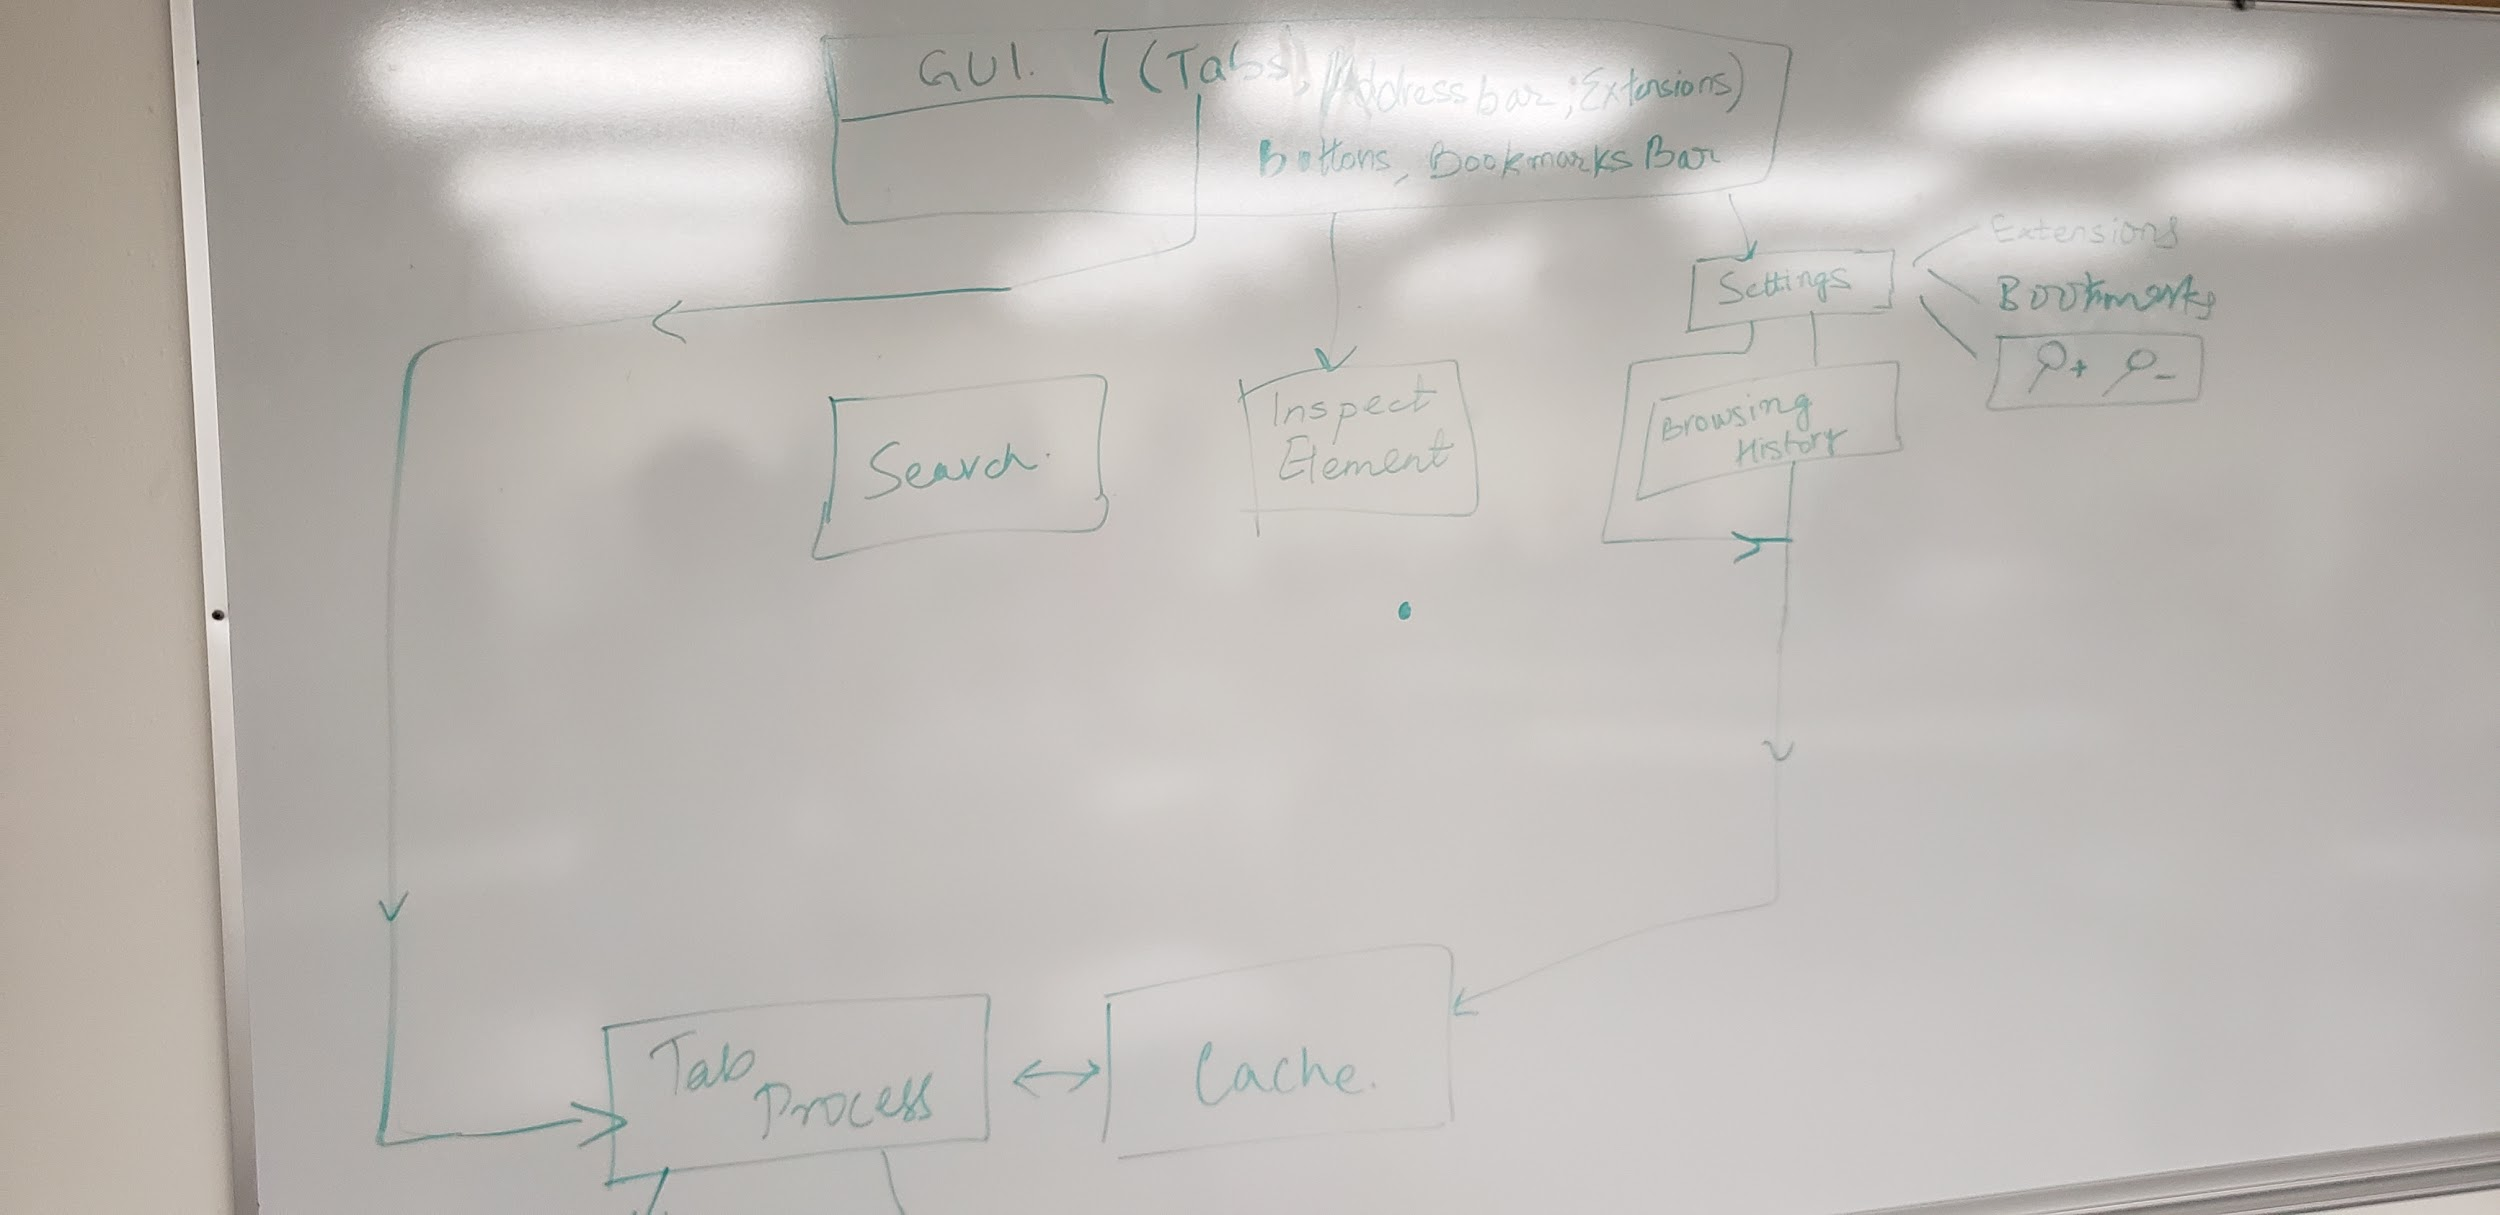 GUI. (Tabs, Address bar, Extensions)
Buttons, Bookmarks Bar
Settings
Extensions
Bookmarks
+ -
Search.
Inspect
Element
Browsing
History
Tab
Process
Cache.